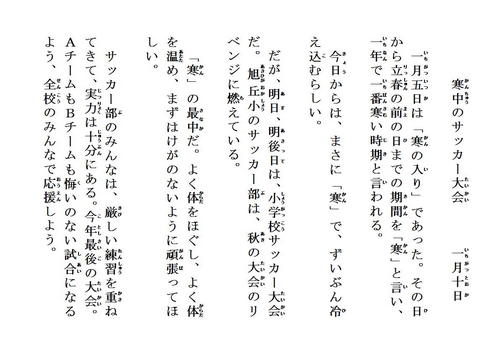 寒中のサッカー大会　　一月十日
一月五日は「寒の入り」であった。その日
から立春の前の日までの期間を「寒」と言い、
一年で一番寒い時期と言われる。
今日からは、まさに「寒」で、ずいぶん冷
え込むらしい。
だが、明日、明後日は、小学校サッカー大会
だ。旭丘小のサッカー部は、秋の大会のリ
ベンジに燃えている。
「寒」の最中だ。よく体をほぐし、よく体
を温め、まずはけがのないように頑張ってほ
しい。
サッカー部のみんなは、厳しい練習を重ね
てきて、実力は十分にある。今年最後の大会。
AチームもBチームも悔いのない試合になる
よう、全校のみんなで応援しよう。